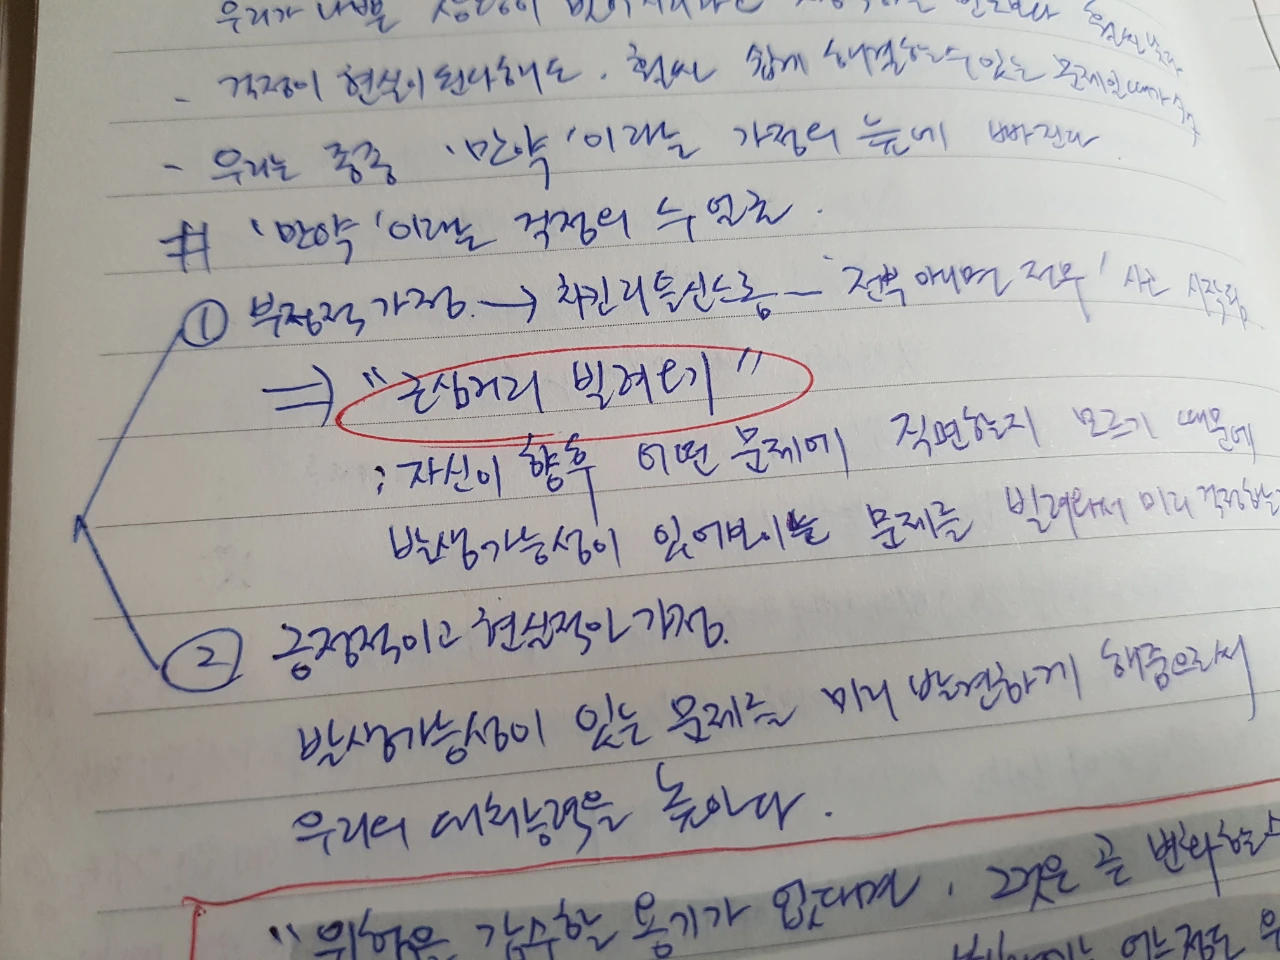 우리가 나쁜 상황이
- 걱정이 현실이 된다해도. 훨씬 쉽게 해결할수있는 문제일때가
- 우리는 종종 '만약'이라는 가정의 늪에 빠진다.
# '만약'이라는 걱정의 두 얼굴.
① 부정적 가정. → 치킨리틀신드롬 - '전부 아니면 전무' 사고 시작됨
⇒ "근심거리 빌려오기"
: 자신이 향후 어떤 문제에 직면할지 모르기 때문에
발생가능성이 있어보이는 문제를 빌려와서 미리 걱정하는
② 긍정적이고 현실적인 가정.
발생가능성이 있는 문제를 미리 발견하게 해줌으로써
우리의 대처능력을 높인다.
"위험을 감수할 용기가 없다면, 그것은 곧 변화할
어느정도